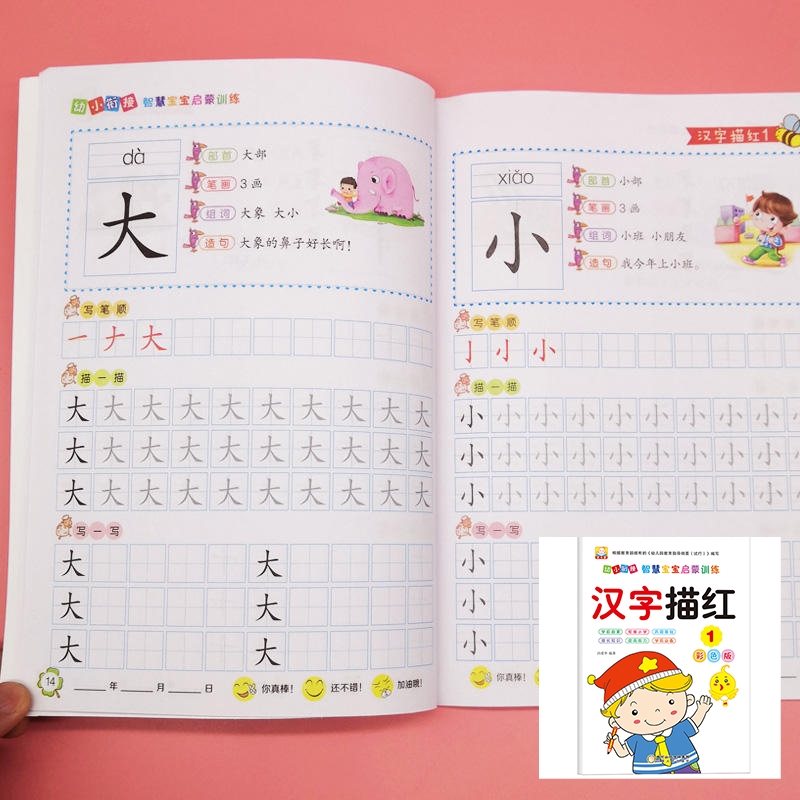 幼小衔接 智慧宝宝启蒙训练
dà
大
部首 大部
笔画 3画
组词 大象 大小
造句 大象的鼻子好长啊!
写笔顺
一 ナ 大
描一描
大 大 大 大 大 大 大 大 大 大
大 大 大 大 大 大 大 大 大 大
大 大 大 大 大 大 大 大 大 大
写一写
大 大
大 大
大 大
14 ____年____月____日 你真棒! 还不错! 加油哦!
汉字描红1
xiǎo
小
部首 小部
笔画 3画
组词 小班 小朋友
造句 我今年上小班。
写笔顺
亅 小 小
描一描
小 小 小 小 小 小 小 小 小
小 小 小 小 小 小 小 小 小
小 小 小 小 小 小 小 小 小
写一写
小
小
小
幼小衔接 智慧宝宝启蒙训练
汉字描红
1
彩色版